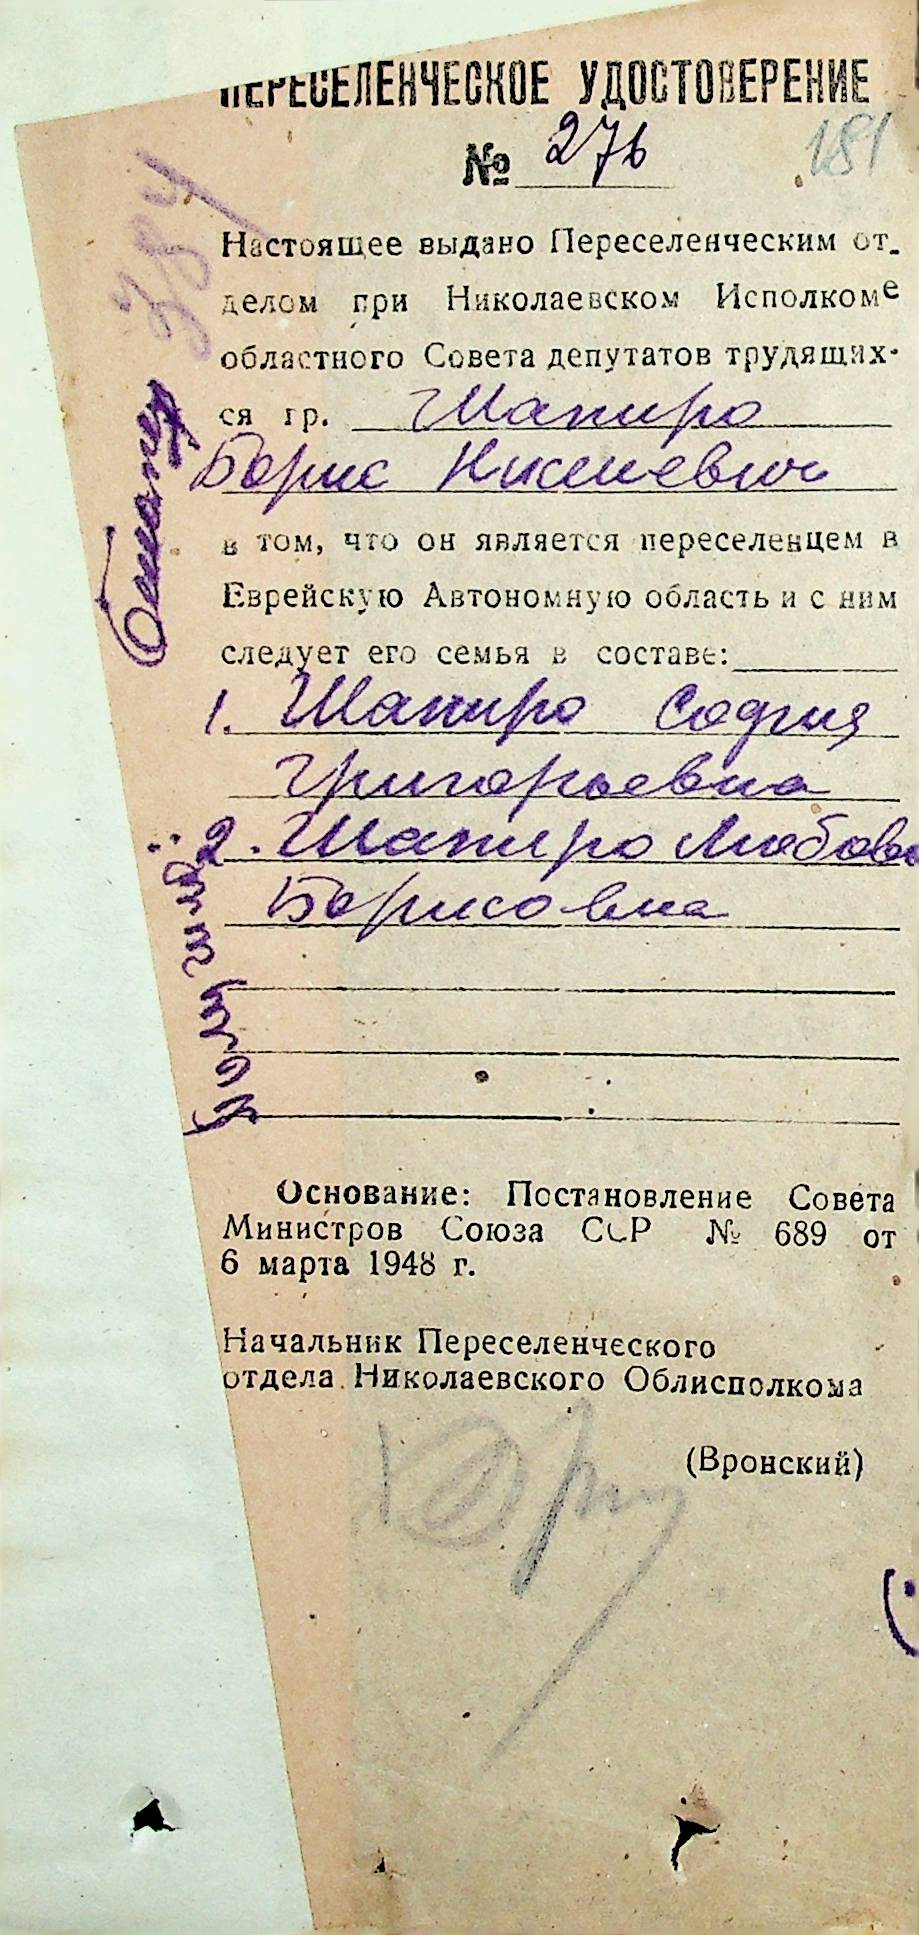 ПЕРЕСЕЛЕНЧЕСКОЕ УДОСТОВЕРЕНИЕ
№ 276
181
384
Настоящее выдано Переселенческим от-
делом при Николаевском Исполкоме
областного Совета депутатов трудящих-
ся гр. Шапиро
Борис Нисеневич
в том, что он является переселенцем в
Еврейскую Автономную область и с ним
следует его семья в составе:
1. Шапиро София
Григорьевна
2. Шапиро Любовь
Борисовна
Основание: Постановление Совета
Министров Союза ССР № 689 от
6 марта 1948 г.
Начальник Переселенческого
отдела Николаевского Облисполкома
(Вронский)